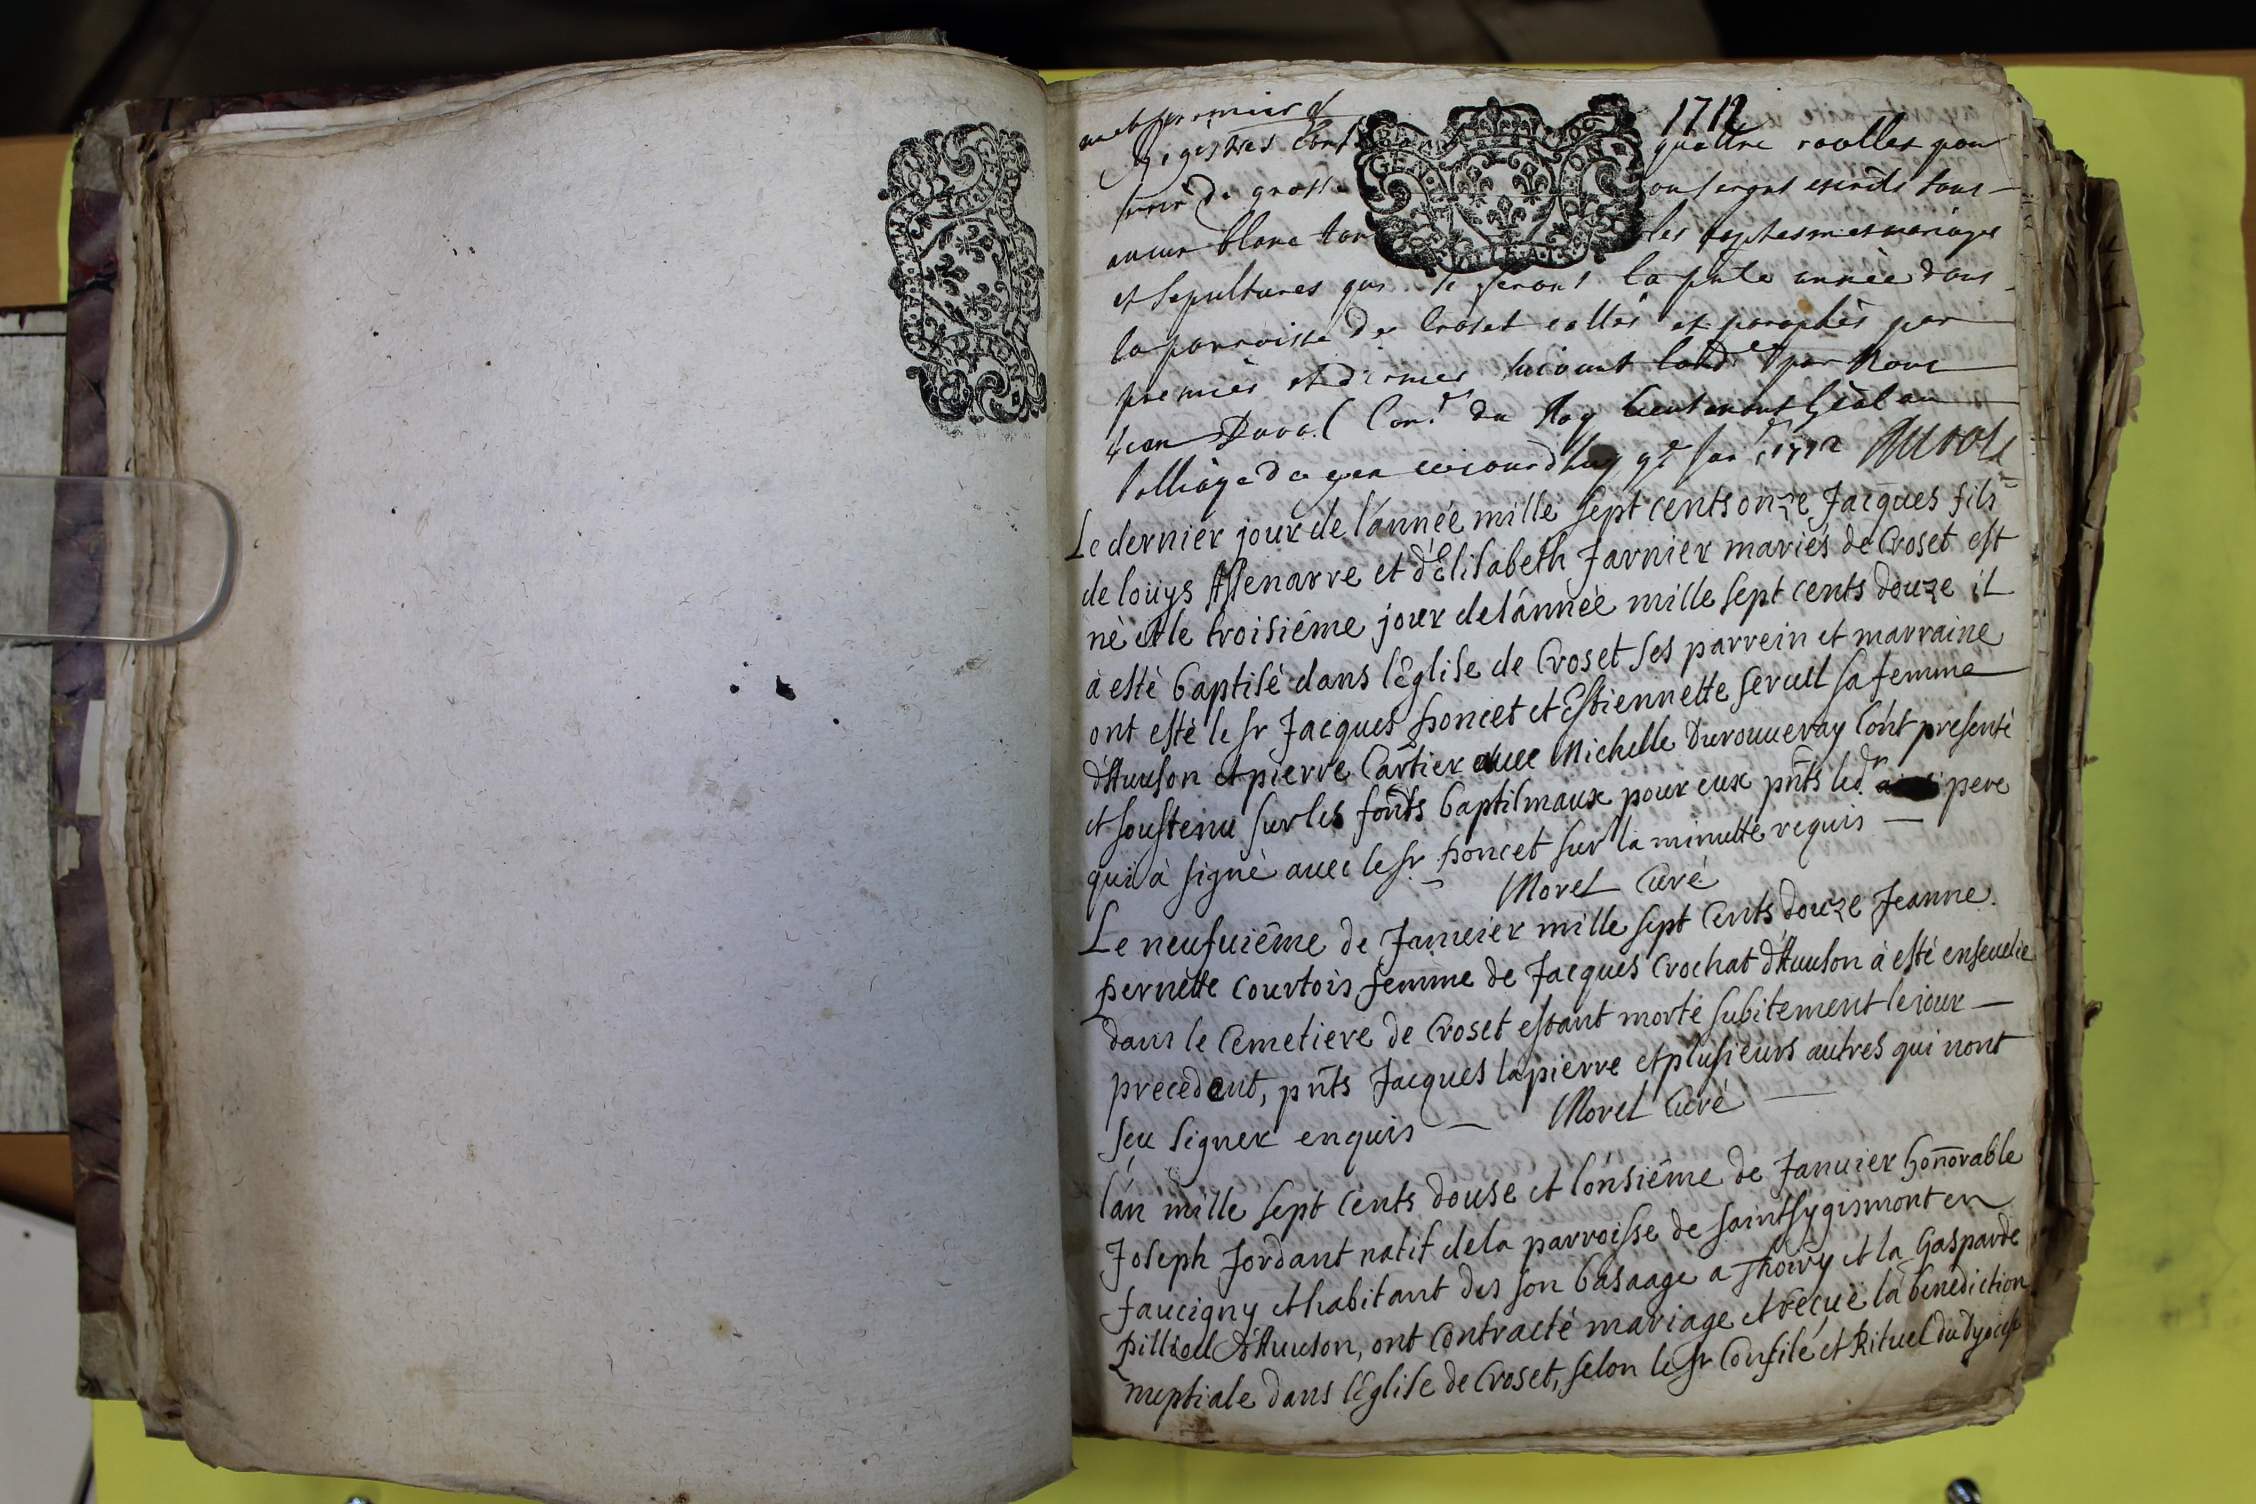 1712
premier
Registres cont quattre roolles pour
servir de grosse ou seront escrits sans
aucun blanc les baptesmes mariages
et sepultures qui se feront la pnte année dans
la parroisse de Croset cottés et paraphés par
premier et dernier suivant lord par Nous
Jean Duval Con.r du Roy Lieutenant Gñal au
Balliage de gex ce jourd'huy 9e Jan 1712 Duval
Le dernier jour de l'année mille sept cents onze Jacques fils
de loüys Assenarre et d'Elisabeth Jarnier mariés de Croset est
né et le troisiême jour de l'année mille sept cents douze il
à esté baptisé dans l'Eglise de Croset ses parrein et marraine
ont esté le sr Jacques poncet et Estiennette seruel sa femme
d'Auuson et pierre Cartier auec Michelle Durouueray l'ont presenté
et soustenu sur les fonts baptismaux pour eux pñts led. pere
qui à signé auec le sr. poncet sur la minutte requis —
Morel Curé
Le neufuiême de Januier mille sept Cents douze Jeanne
pernette Courtois femme de Jacques Crochat d'Auuson à esté enseuelie
dans le Cemetiere de Croset estant morte subitement le jour —
precedent, pñts Jacques lapierre et plusieurs autres qui nont
seu signer enquis — Morel Curé —
l'an mille sept Cents douse et l'onsiême de Januier honnorable
Joseph Jordant natif de la parroisse de saint sygismont en
faucigny et habitant des son basaage a Thoiry et la Gasparde
pilliod d'Auuson, ont contracté mariage et reçüe la benediction
nuptiale dans l'Eglise de Croset, selon le st Consile et Rituel du dyocese